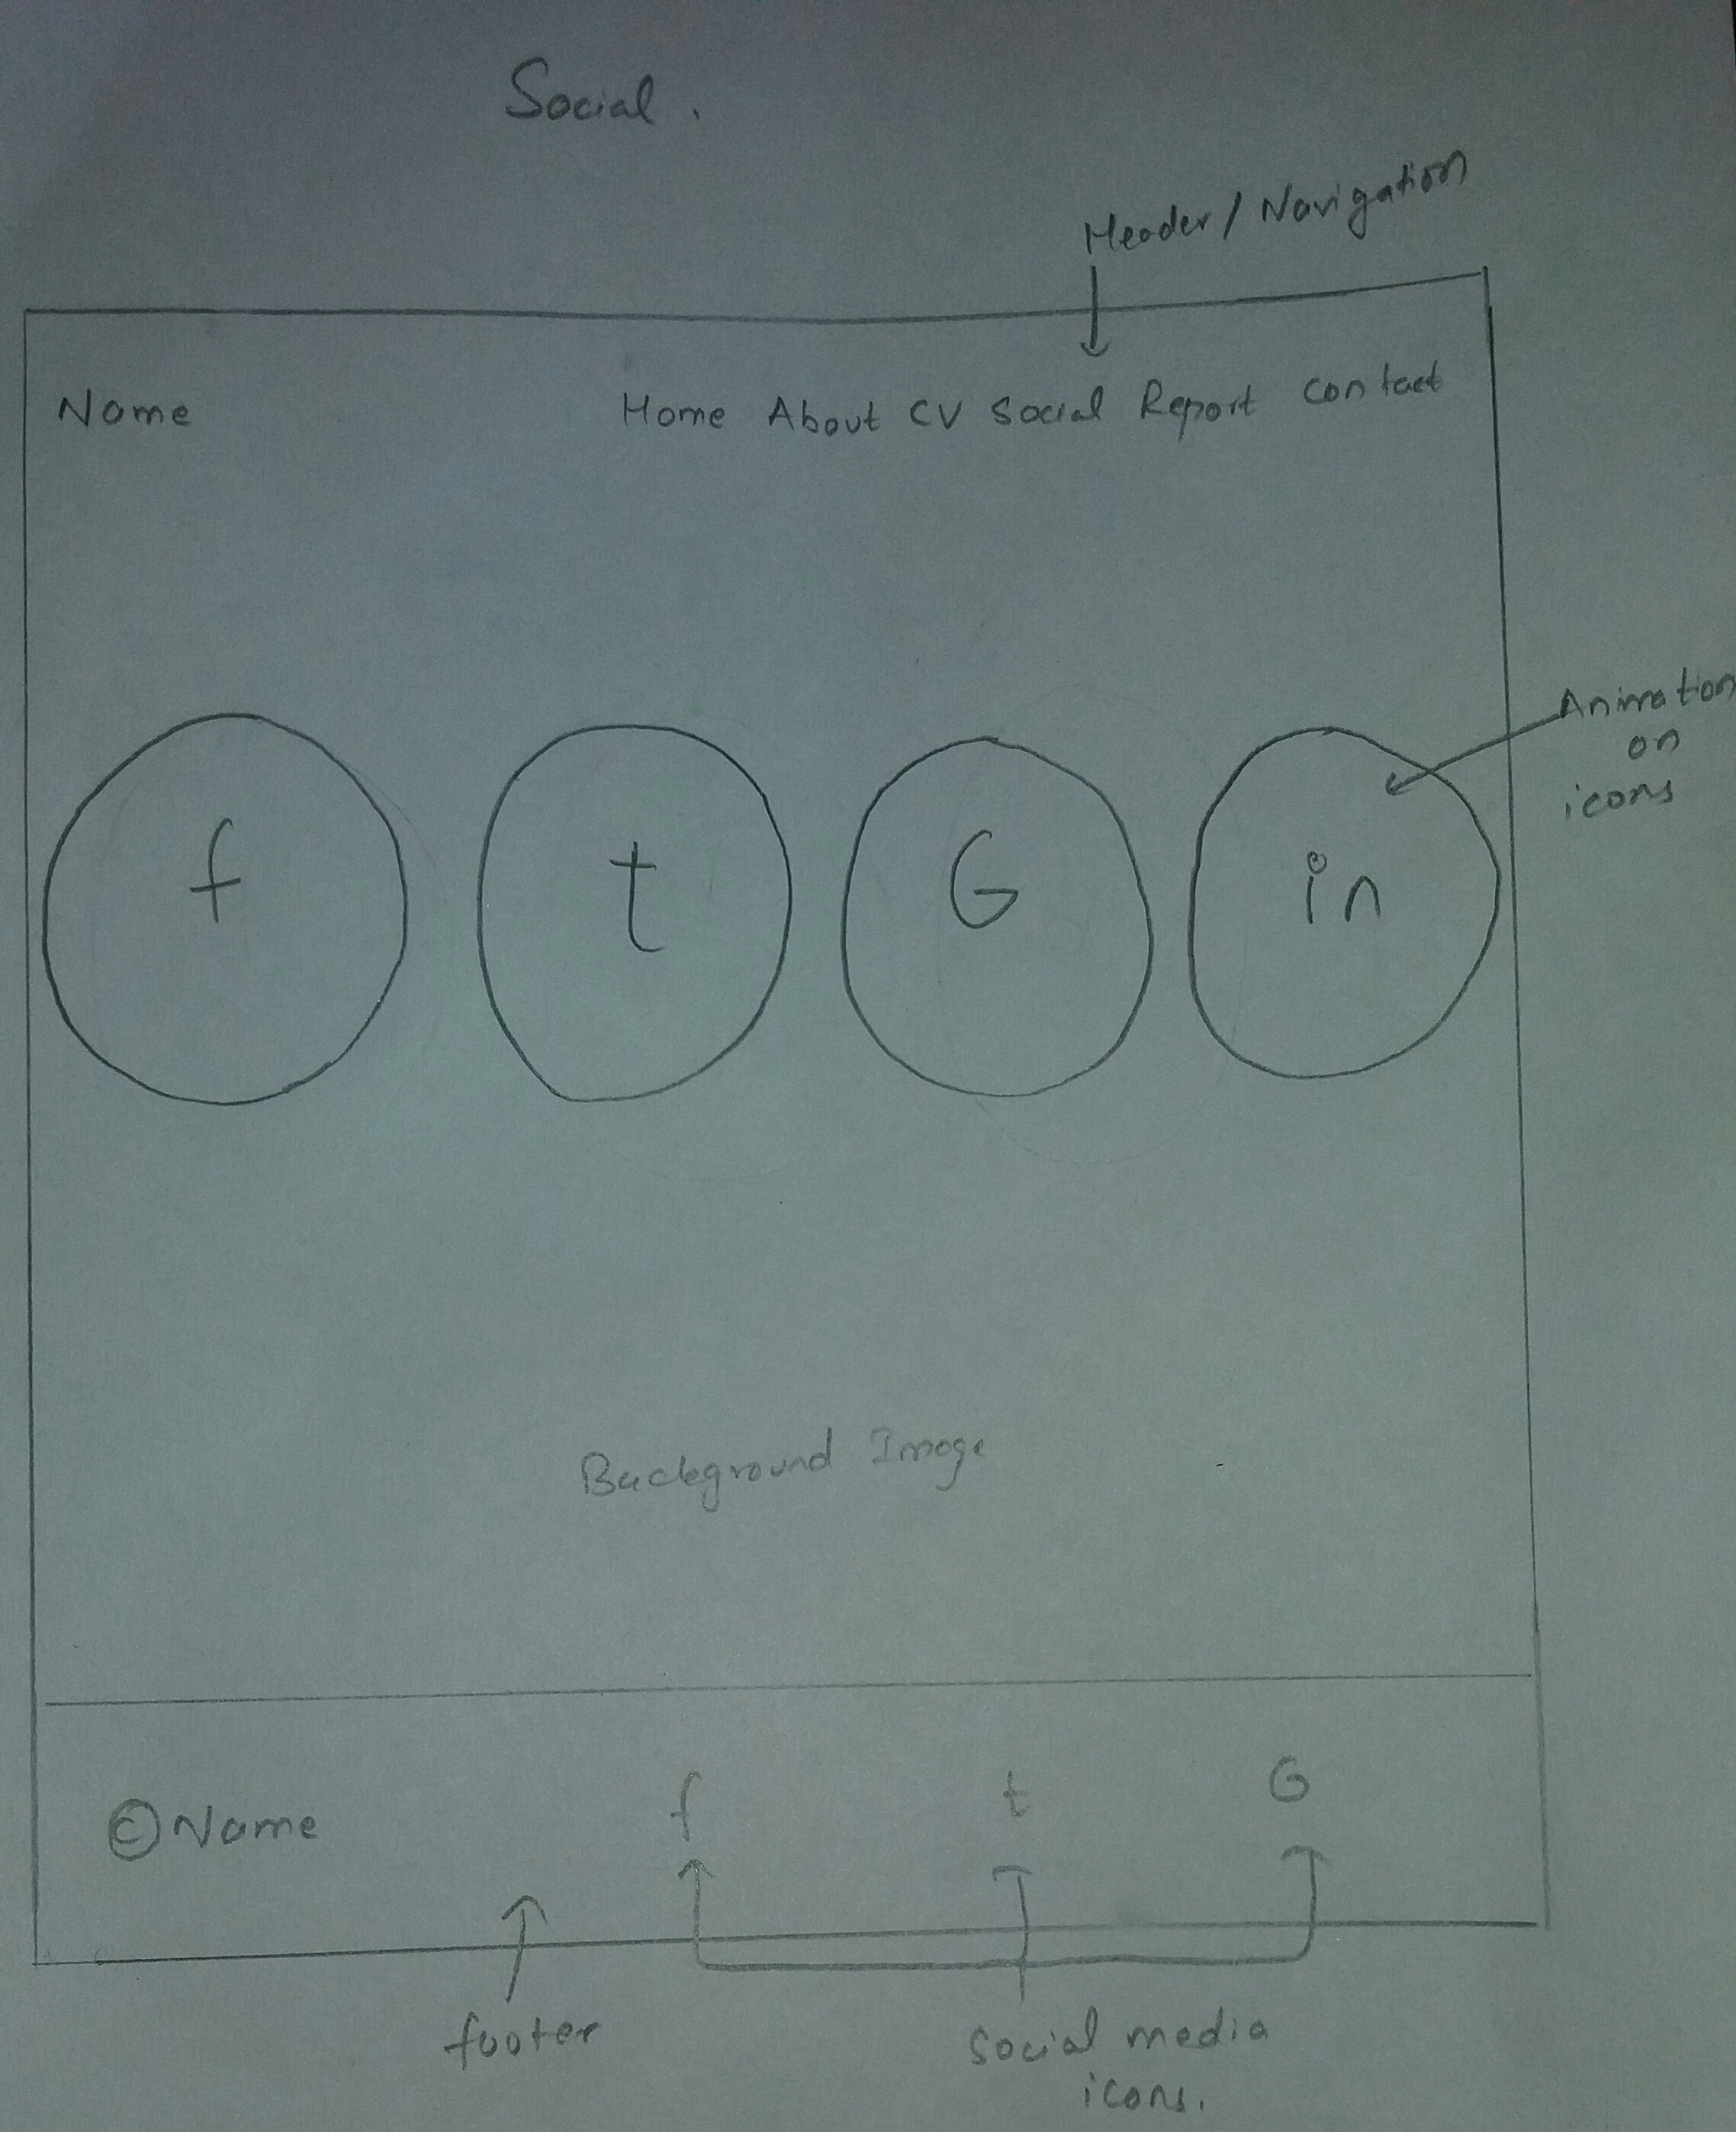 Social.
Header/Navigation
Name Home About CV Social Report Contact
Animation
on
icons
f t G in
Background Image
©Name f t G
footer
Social media
icons.